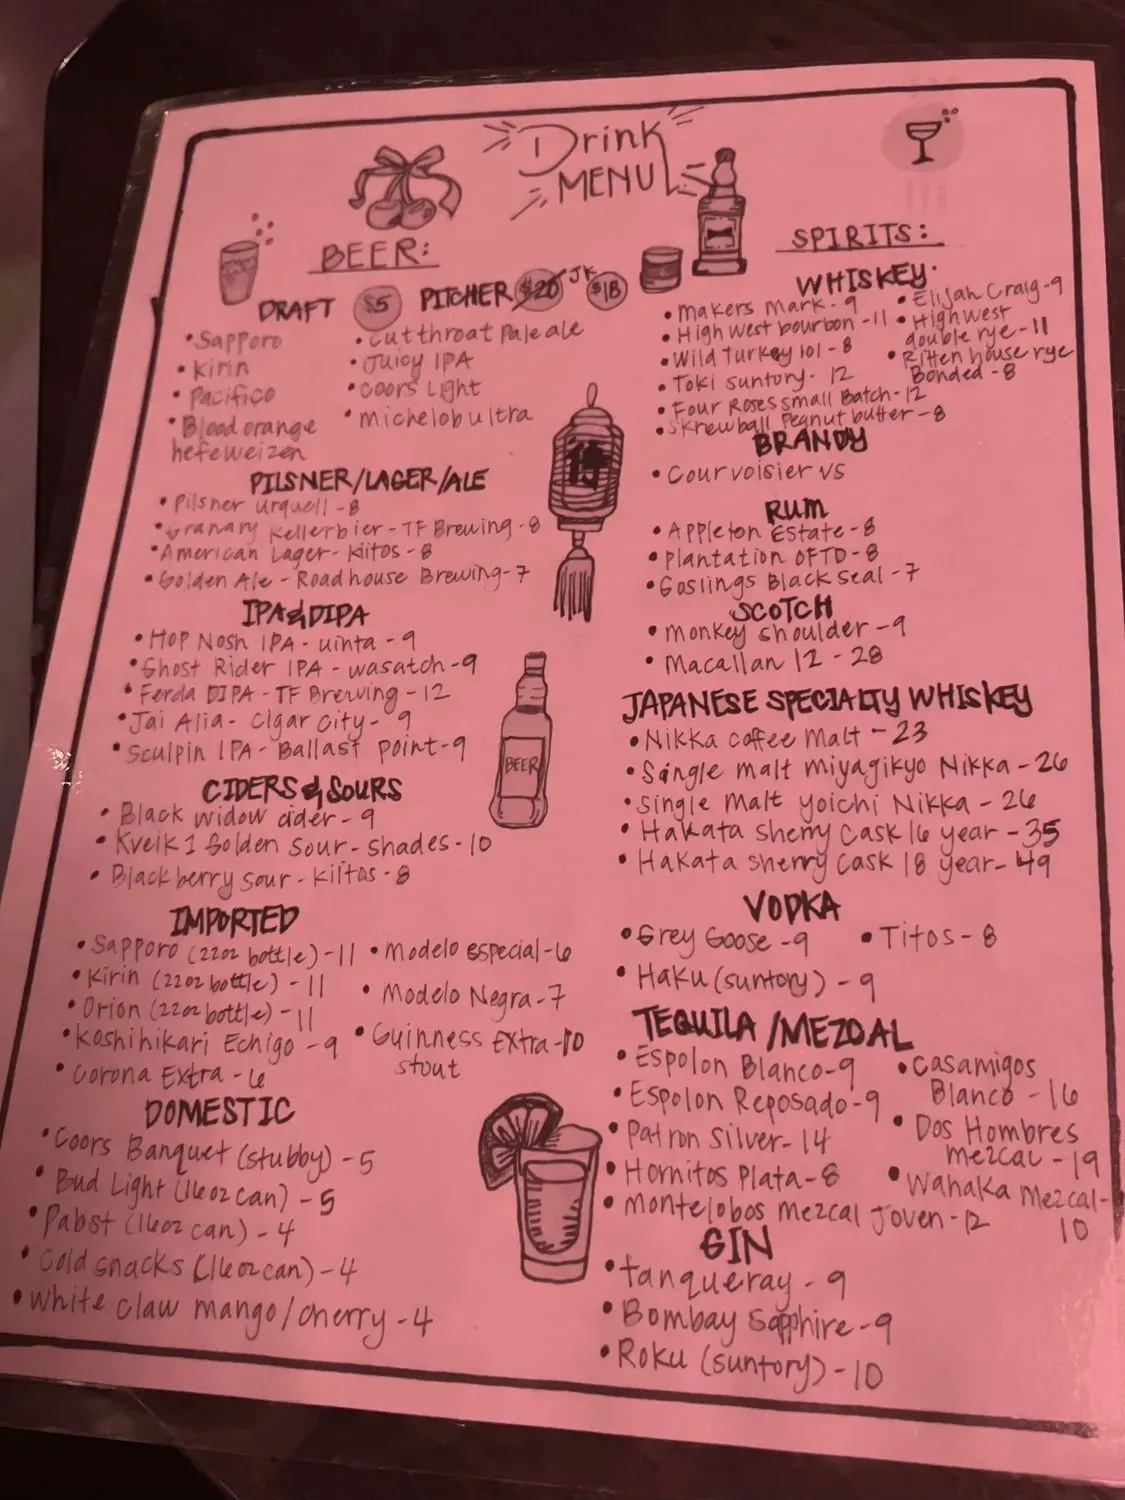 Drink
MENU
BEER:
DRAFT $5 PITCHER $20 JK $18
• Sapporo
• Kirin
• Pacifico
• Blood orange
hefeweizen
• Cutthroat Pale ale
• Juicy IPA
• Coors Light
• Michelob ultra
PILSNER/LAGER/ALE
• Pilsner Urquell - 8
• Granary Kellerbier - TF Brewing - 8
• American Lager - Kiitos - 8
• Golden Ale - Roadhouse Brewing - 7
IPA & DIPA
• Hop Nosh IPA - uinta - 9
• Ghost Rider IPA - wasatch - 9
• Ferda DIPA - TF Brewing - 12
• Jai Alia - Cigar City - 9
• Sculpin IPA - Ballast point - 9
CIDERS & SOURS
• Black widow cider - 9
• Kveik 1 Golden Sour - Shades - 10
• Blackberry Sour - Kiitos - 8
IMPORTED
• Sapporo (22oz bottle) - 11
• Kirin (22oz bottle) - 11
• Orion (22oz bottle) - 11
• Koshihikari Echigo - 9
• Corona Extra - 6
• Modelo especial - 6
• Modelo Negra - 7
• Guinness Extra - 10
stout
DOMESTIC
• Coors Banquet (stubby) - 5
• Bud Light (16oz can) - 5
• Pabst (16oz can) - 4
• Cold snacks (16oz can) - 4
• White Claw mango/cherry - 4
BEER
SPIRITS:
WHISKEY:
• Makers Mark - 9
• High West bourbon - 11
• Wild Turkey 101 - 8
• Toki suntory - 12
• Four Roses small Batch - 12
• Skrewball Peanut butter - 8
• Elijah Craig - 9
• High west
double rye - 11
• Ritten house rye
Bonded - 8
BRANDY
• Courvoisier VS
RUM
• Appleton Estate - 8
• Plantation OFTD - 8
• Goslings Black Seal - 7
SCOTCH
• Monkey shoulder - 9
• Macallan 12 - 28
JAPANESE SPECIALTY WHISKEY
• Nikka coffee Malt - 23
• Single malt miyagikyo Nikka - 26
• Single Malt yoichi Nikka - 26
• Hakata sherry Cask 16 year - 35
• Hakata sherry Cask 18 year - 49
VODKA
• Grey Goose - 9
• Titos - 8
• Haku (suntory) - 9
TEQUILA / MEZCAL
• Espolon Blanco - 9
• Espolon Reposado - 9
• Patron Silver - 14
• Hornitos Plata - 8
• Montelobos mezcal Joven - 12
• Casamigos
Blanco - 16
• Dos Hombres
mezcal - 19
• Wahaka Mezcal -
10
GIN
• tanqueray - 9
• Bombay Sapphire - 9
• Roku (suntory) - 10